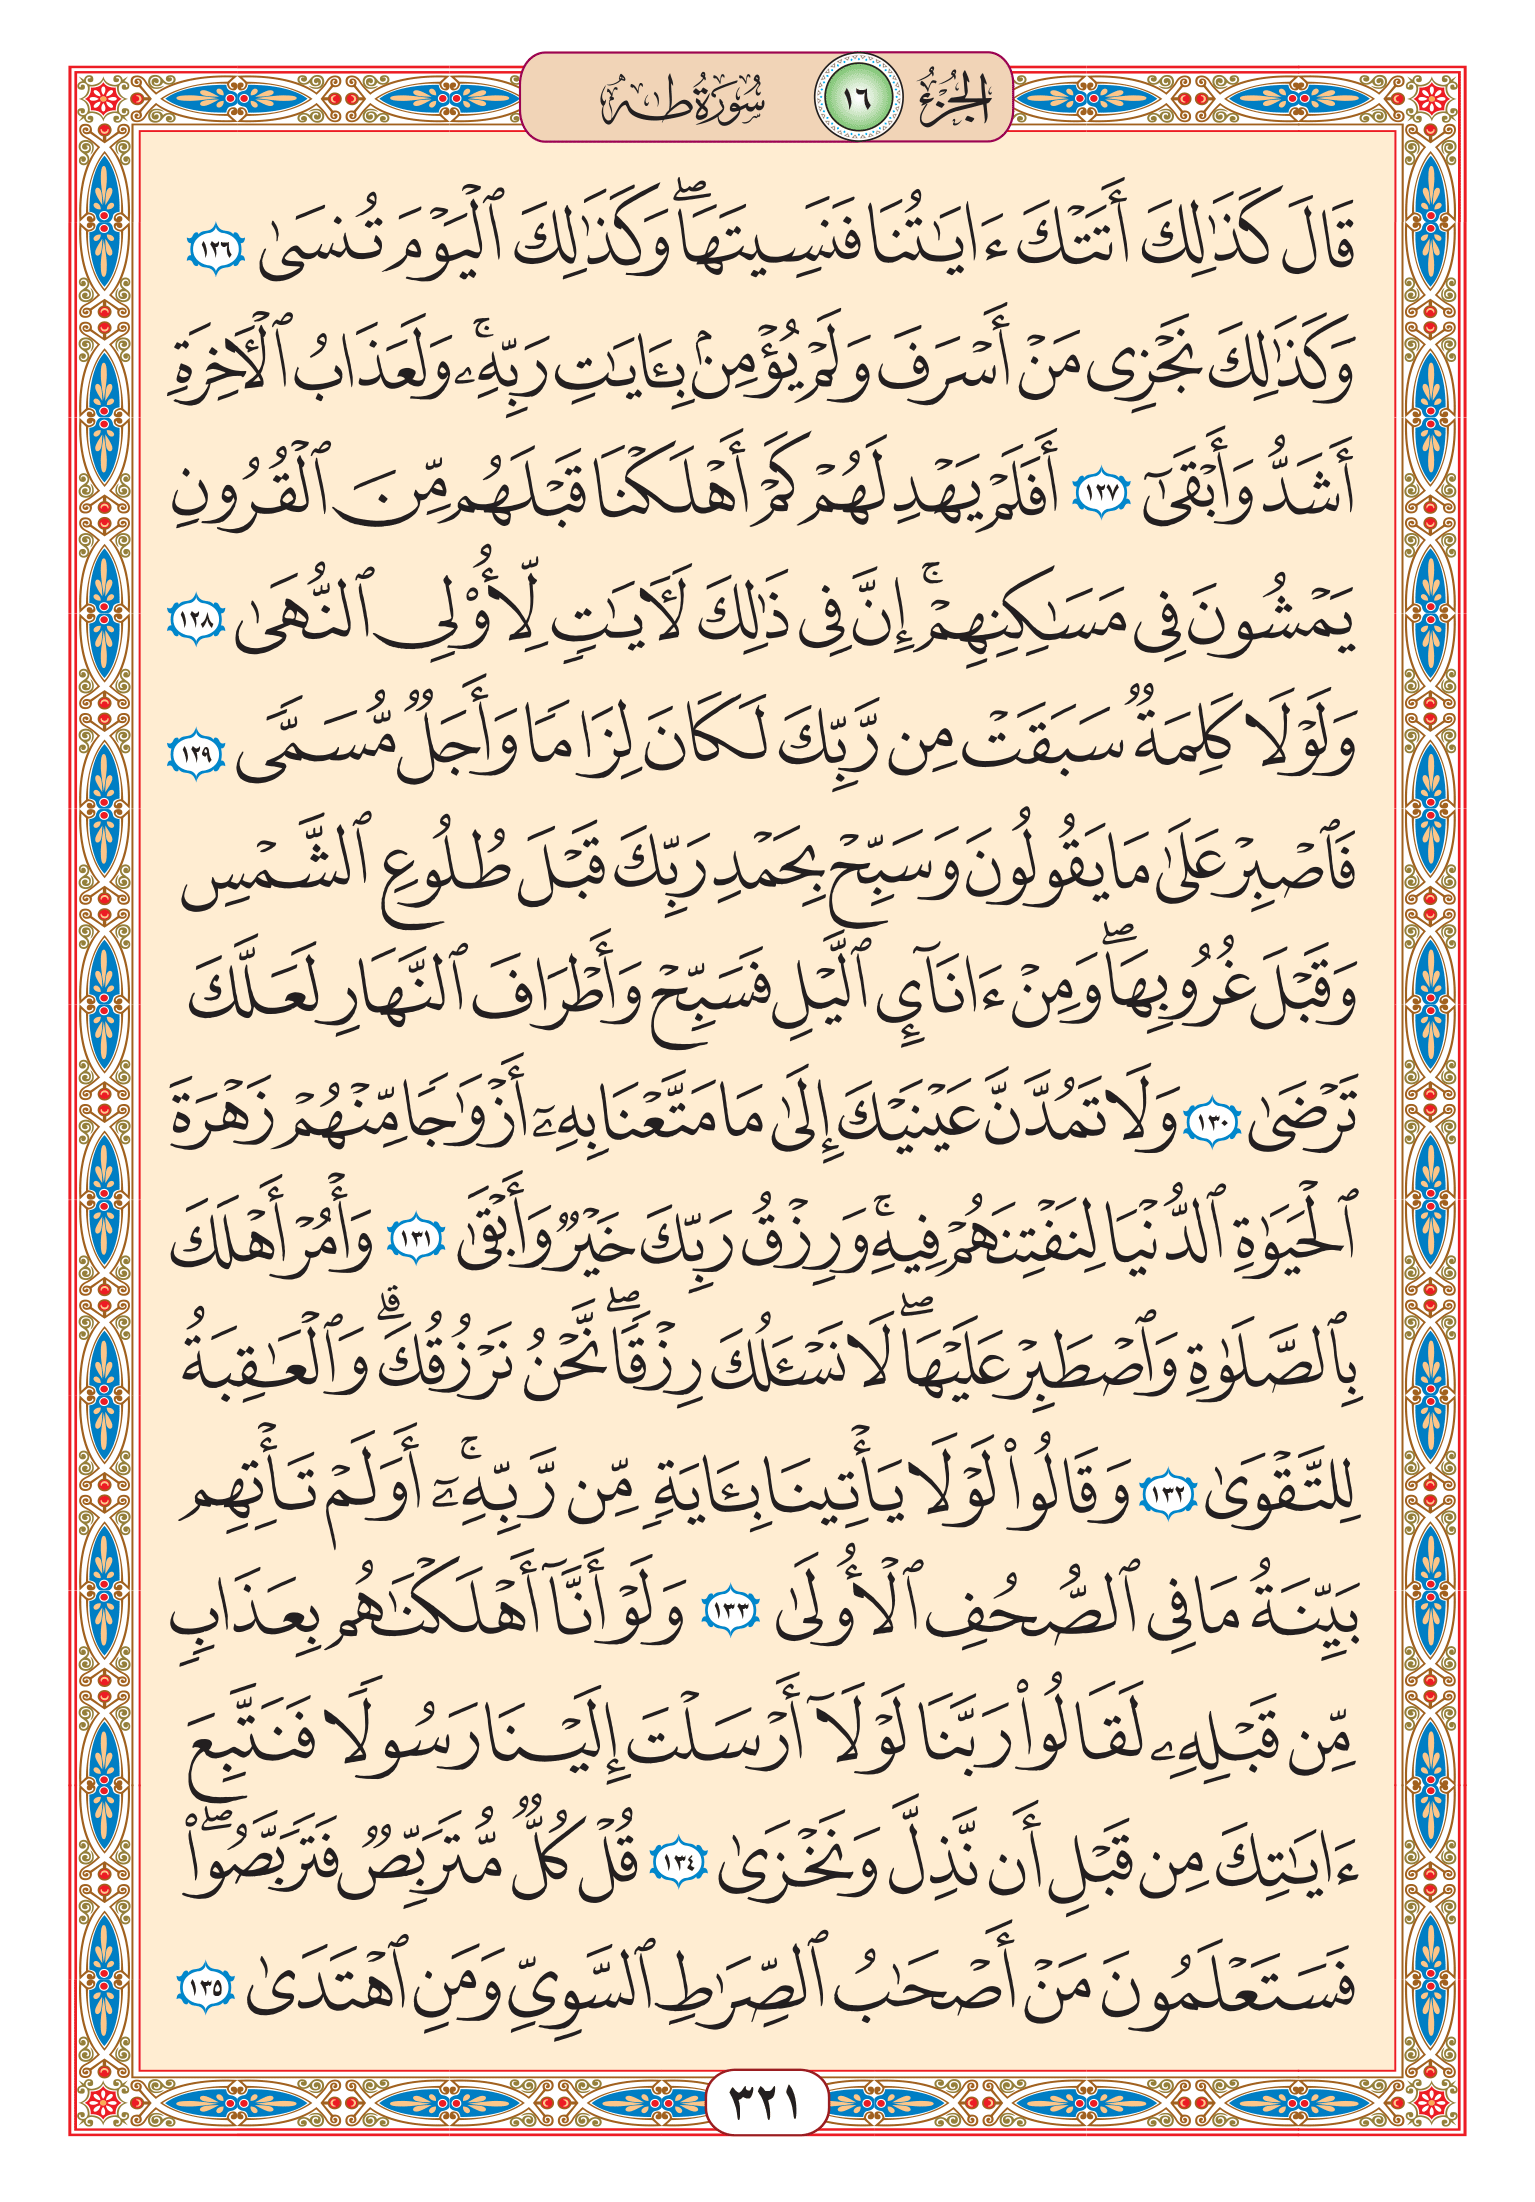 الجُزْءُ ١٦ سُورَةُ طه
قَالَ كَذَٰلِكَ أَتَتْكَ ءَايَٰتُنَا فَنَسِيتَهَاۖ وَكَذَٰلِكَ ٱلْيَوْمَ تُنسَىٰ ١٢٦
وَكَذَٰلِكَ نَجْزِى مَنْ أَسْرَفَ وَلَمْ يُؤْمِنۢ بِـَٔايَٰتِ رَبِّهِۦۚ وَلَعَذَابُ ٱلْأَخِرَةِ
أَشَدُّ وَأَبْقَىٰٓ ١٢٧ أَفَلَمْ يَهْدِ لَهُمْ كَمْ أَهْلَكْنَا قَبْلَهُم مِّنَ ٱلْقُرُونِ
يَمْشُونَ فِى مَسَٰكِنِهِمْۚ إِنَّ فِى ذَٰلِكَ لَأَيَٰتٍ لِّأُو۟لِى ٱلنُّهَىٰ ١٢٨
وَلَوْلَا كَلِمَةٌ سَبَقَتْ مِن رَّبِّكَ لَكَانَ لِزَامًا وَأَجَلٌ مُّسَمًّى ١٢٩
فَٱصْبِرْ عَلَىٰ مَا يَقُولُونَ وَسَبِّحْ بِحَمْدِ رَبِّكَ قَبْلَ طُلُوعِ ٱلشَّمْسِ
وَقَبْلَ غُرُوبِهَاۖ وَمِنْ ءَانَآئِ ٱلَّيْلِ فَسَبِّحْ وَأَطْرَافَ ٱلنَّهَارِ لَعَلَّكَ
تَرْضَىٰ ١٣٠ وَلَا تَمُدَّنَّ عَيْنَيْكَ إِلَىٰ مَا مَتَّعْنَا بِهِۦٓ أَزْوَٰجًا مِّنْهُمْ زَهْرَةَ
ٱلْحَيَوٰةِ ٱلدُّنْيَا لِنَفْتِنَهُمْ فِيهِۚ وَرِزْقُ رَبِّكَ خَيْرٌ وَأَبْقَىٰ ١٣١ وَأْمُرْ أَهْلَكَ
بِٱلصَّلَوٰةِ وَٱصْطَبِرْ عَلَيْهَاۖ لَا نَسْـَٔلُكَ رِزْقًاۖ نَّحْنُ نَرْزُقُكَۗ وَٱلْعَٰقِبَةُ
لِلتَّقْوَىٰ ١٣٢ وَقَالُوا۟ لَوْلَا يَأْتِينَا بِـَٔايَةٍ مِّن رَّبِّهِۦٓۚ أَوَلَمْ تَأْتِهِم
بَيِّنَةُ مَا فِى ٱلصُّحُفِ ٱلْأُولَىٰ ١٣٣ وَلَوْ أَنَّآ أَهْلَكْنَٰهُم بِعَذَابٍ
مِّن قَبْلِهِۦ لَقَالُوا۟ رَبَّنَا لَوْلَآ أَرْسَلْتَ إِلَيْنَا رَسُولًا فَنَتَّبِعَ
ءَايَٰتِكَ مِن قَبْلِ أَن نَّذِلَّ وَنَخْزَىٰ ١٣٤ قُلْ كُلٌّ مُّتَرَبِّصٌ فَتَرَبَّصُوا۟ۖ
فَسَتَعْلَمُونَ مَنْ أَصْحَٰبُ ٱلصِّرَٰطِ ٱلسَّوِىِّ وَمَنِ ٱهْتَدَىٰ ١٣٥
٣٢١